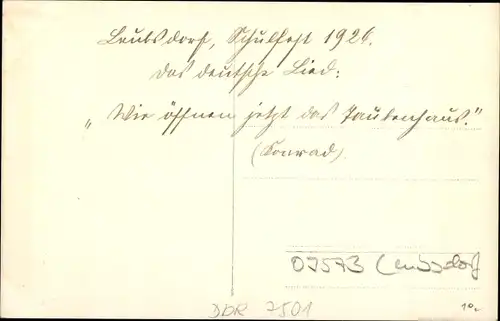 Leubsdorf, Schulfest 1926.
Das deutsche Lied:
„Wir öffnen jetzt das Taubenhaus."
(Conrad)
09573 Leubsdorf
DDR 7501
10.-